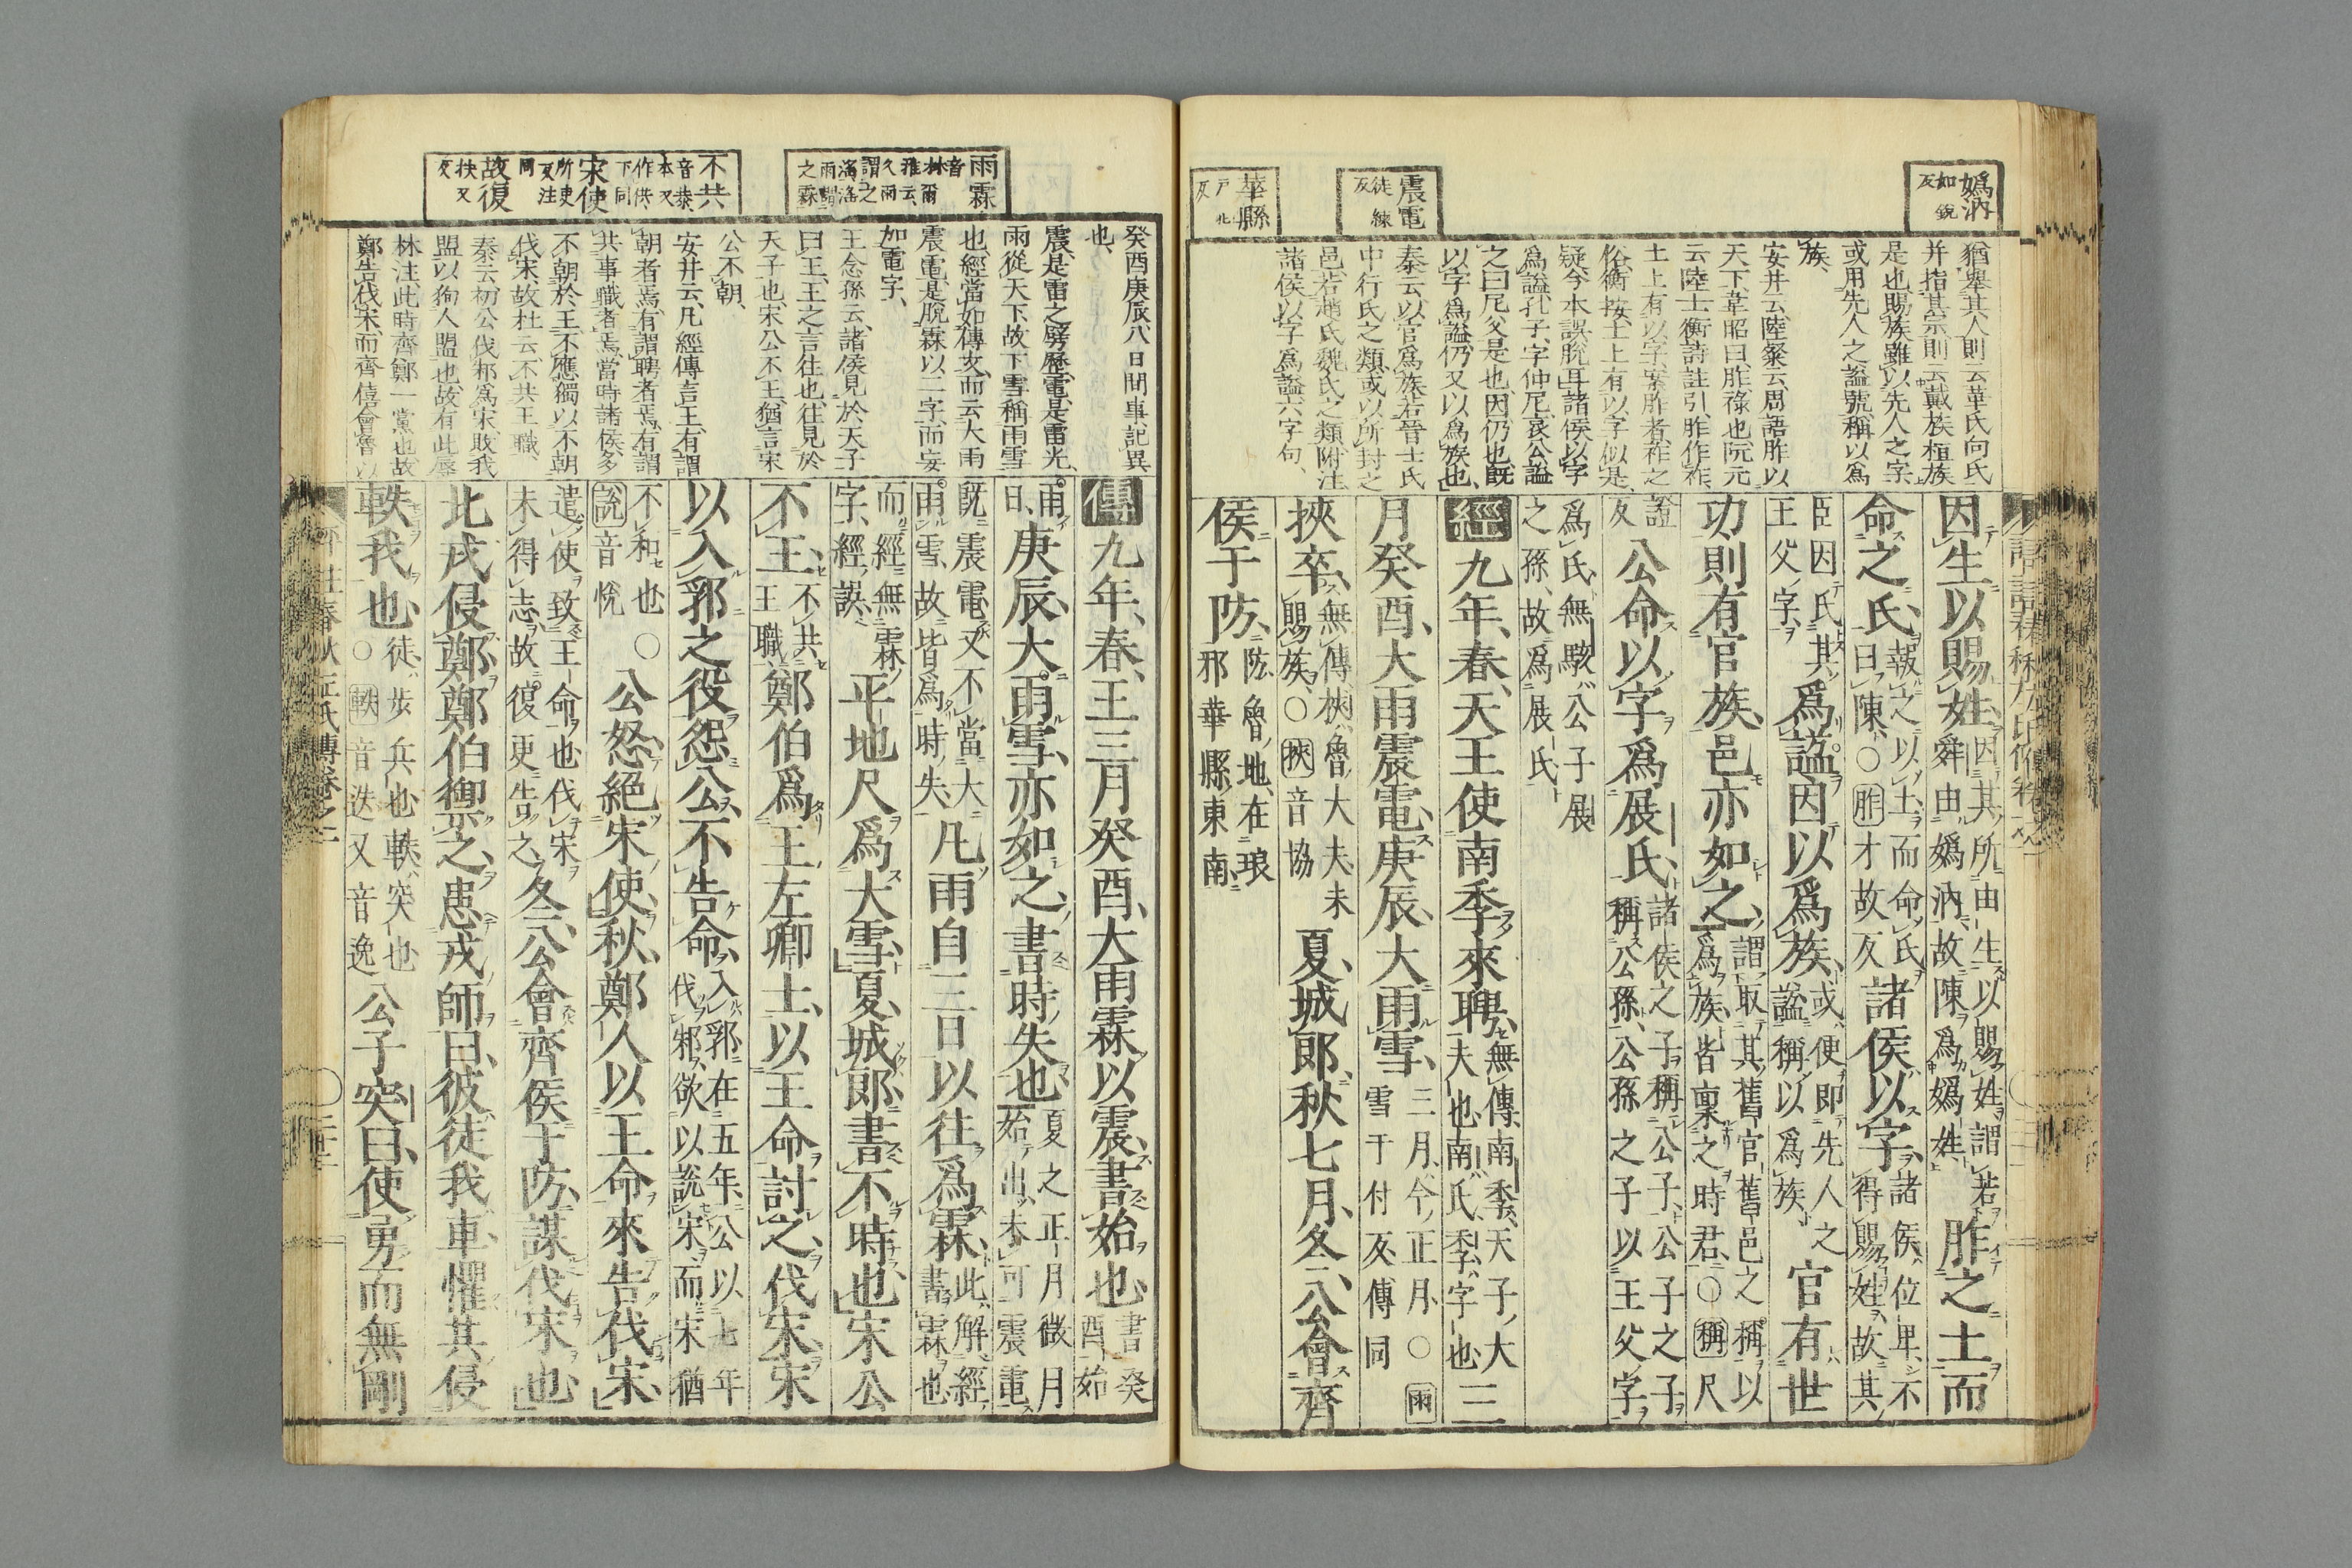 嬀汭
如銳
反
震電
徒練
反
華縣
戶化
反
猶舉其人則云華氏向氏
并指其宗則云戴族桓族
是也賜族雖以先人之字
或用先人之謚號稱以爲
族、
安井云、陸粲云、周語胙以
天下、韋昭曰、胙祿也、阮元
云陸士衡詩註引、胙作祚、
土上有以字、案胙者、祚之
俗、衡按、土上有以字似是、
疑今本誤脫耳諸侯以字
爲謚、孔子、字仲尼、哀公謚
之曰尼父是也、因仍也、既
以字爲謚仍又以爲族也、
秦云、以官爲族、若晉士氏
中行氏之類、或以所封之
邑、若趙氏魏氏之類、附注
諸侯以字爲謚六字句、
因生以賜姓因其所由生以賜姓謂若舜由嬀汭故陳爲嬀姓胙之土而
命之氏報之以土而命氏曰陳○胙才故反諸侯以字諸侯位卑不得賜姓故其
臣因氏其王父字爲謚因以爲族或使即先人之謚稱以爲族官有世
功則有官族邑亦如之謂取其舊官舊邑之稱以爲族皆稟之時君○稱尺
證反公命以字爲展氏諸侯之子稱公子公子之子稱公孫公孫之子以王父字
爲氏無駭公子展之孫故爲展氏
經九年春天王使南季來聘無傳南季天子大夫也南氏季字也三
月癸酉大雨震電庚辰大雨雪三月今正月○雨雪于付反傳同
挾卒無傳挾魯大夫未賜族○挾音協夏城郎秋七月冬公會齊
侯于防防魯地在琅邪華縣東南
雨霖
音林爾
雅云
久雨
謂之
淫
之霖
不共
音恭
本又
作供
下同
宋使
所吏
反注
同
故復
扶又
反
癸酉庚辰八日間事記異
也、
震、是雷之劈歷、電、是雷光、
雨從天下、故下雪稱雨雪
也、經當如傳文、而云大雨
震電、是脫霖以二字、而妄
加電字、
王念孫云、諸侯見於天子
曰王、王之言往也、往見於
天子也、宋公不王、猶言宋
公不朝、
安井云、凡經傳言王、有謂
朝者焉、有謂聘者焉、有謂
共事職者焉、當時諸侯多
不朝於王、不應獨以不朝
伐宋、故杜云、不共王職、
秦云、初公伐邾爲宋、敗我
盟以狥人盟也、故有此辱
林注、此時齊鄭一黨也、故
鄭告伐宋、而齊僖會魯以
傳九年春王三月癸酉大雨霖以震書始也書癸酉始
雨日庚辰大雨雪亦如之書時失也夏之正月微月始出未可震電
既震電又不當大雨雪故皆爲時失凡雨自三日以往爲霖此解經書霖也
而經無霖字經誤平地尺爲大雪夏城郎書不時也宋公
不王不共王職鄭伯爲王左卿士以王命討之伐宋宋
以入郛之役怨公不告命入郛在五年公以七年伐邾欲以說宋而宋猶
不和也○說音悅公怒絕宋使秋鄭人以王命來告伐宋
遣使致王命也伐宋未得志故復更告之冬公會齊侯于防謀伐宋也
北戎侵鄭鄭伯禦之患戎師曰彼徒我車懼其侵
軼我也徒步兵也軼突也○軼音迭又音逸公子突曰使勇而無剛